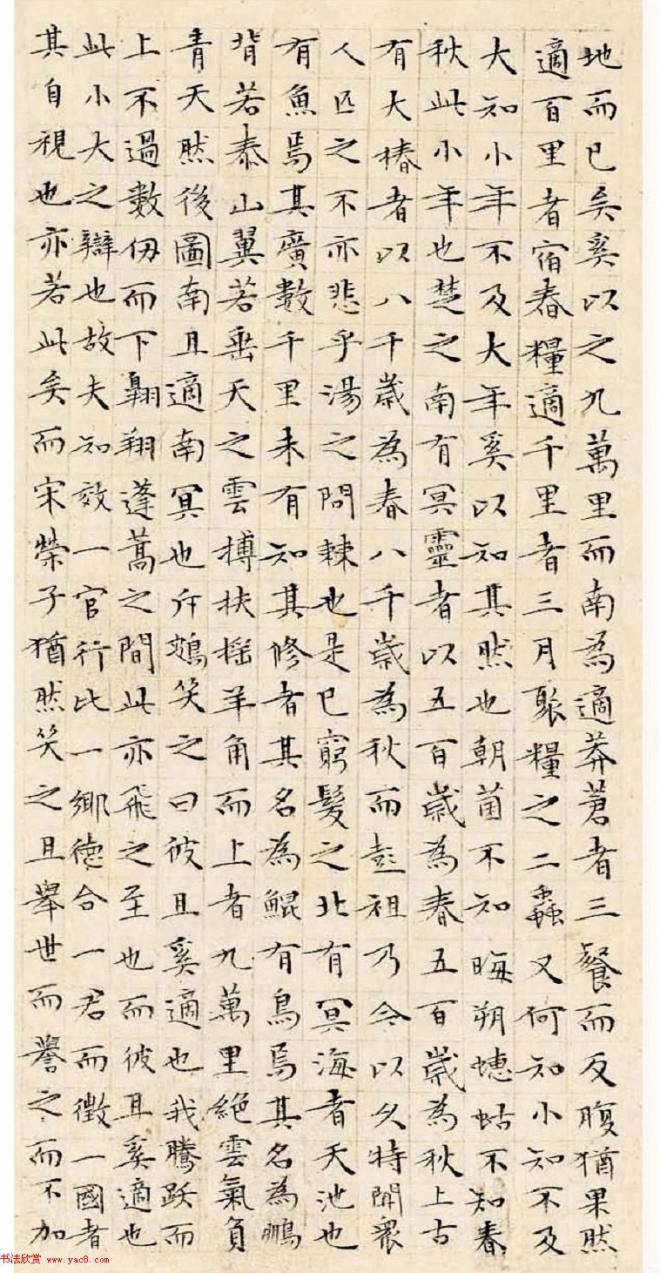 地而已矣奚以之九萬里而南為適莽蒼者三餐而反腹猶果然
適百里者宿舂糧適千里者三月聚糧之二蟲又何知小知不及
大知小年不及大年奚以知其然也朝菌不知晦朔蟪蛄不知春
秋此小年也楚之南有冥靈者以五百歲為春五百歲為秋上古
有大椿者以八千歲為春八千歲為秋而彭祖乃今以久特聞衆
人匹之不亦悲乎湯之問棘也是已窮髮之北有冥海者天池也
有魚焉其廣數千里未有知其修者其名為鯤有鳥焉其名為鵬
背若泰山翼若垂天之雲摶扶搖羊角而上者九萬里絕雲氣負
青天然後圖南且適南冥也斥鴳笑之曰彼且奚適也我騰躍而
上不過數仞而下翱翔蓬蒿之間此亦飛之至也而彼且奚適也
此小大之辯也故夫知效一官行比一鄉德合一君而徵一國者
其自視也亦若此矣而宋榮子猶然笑之且舉世而譽之而不加
书法欣赏 www.yac8.com